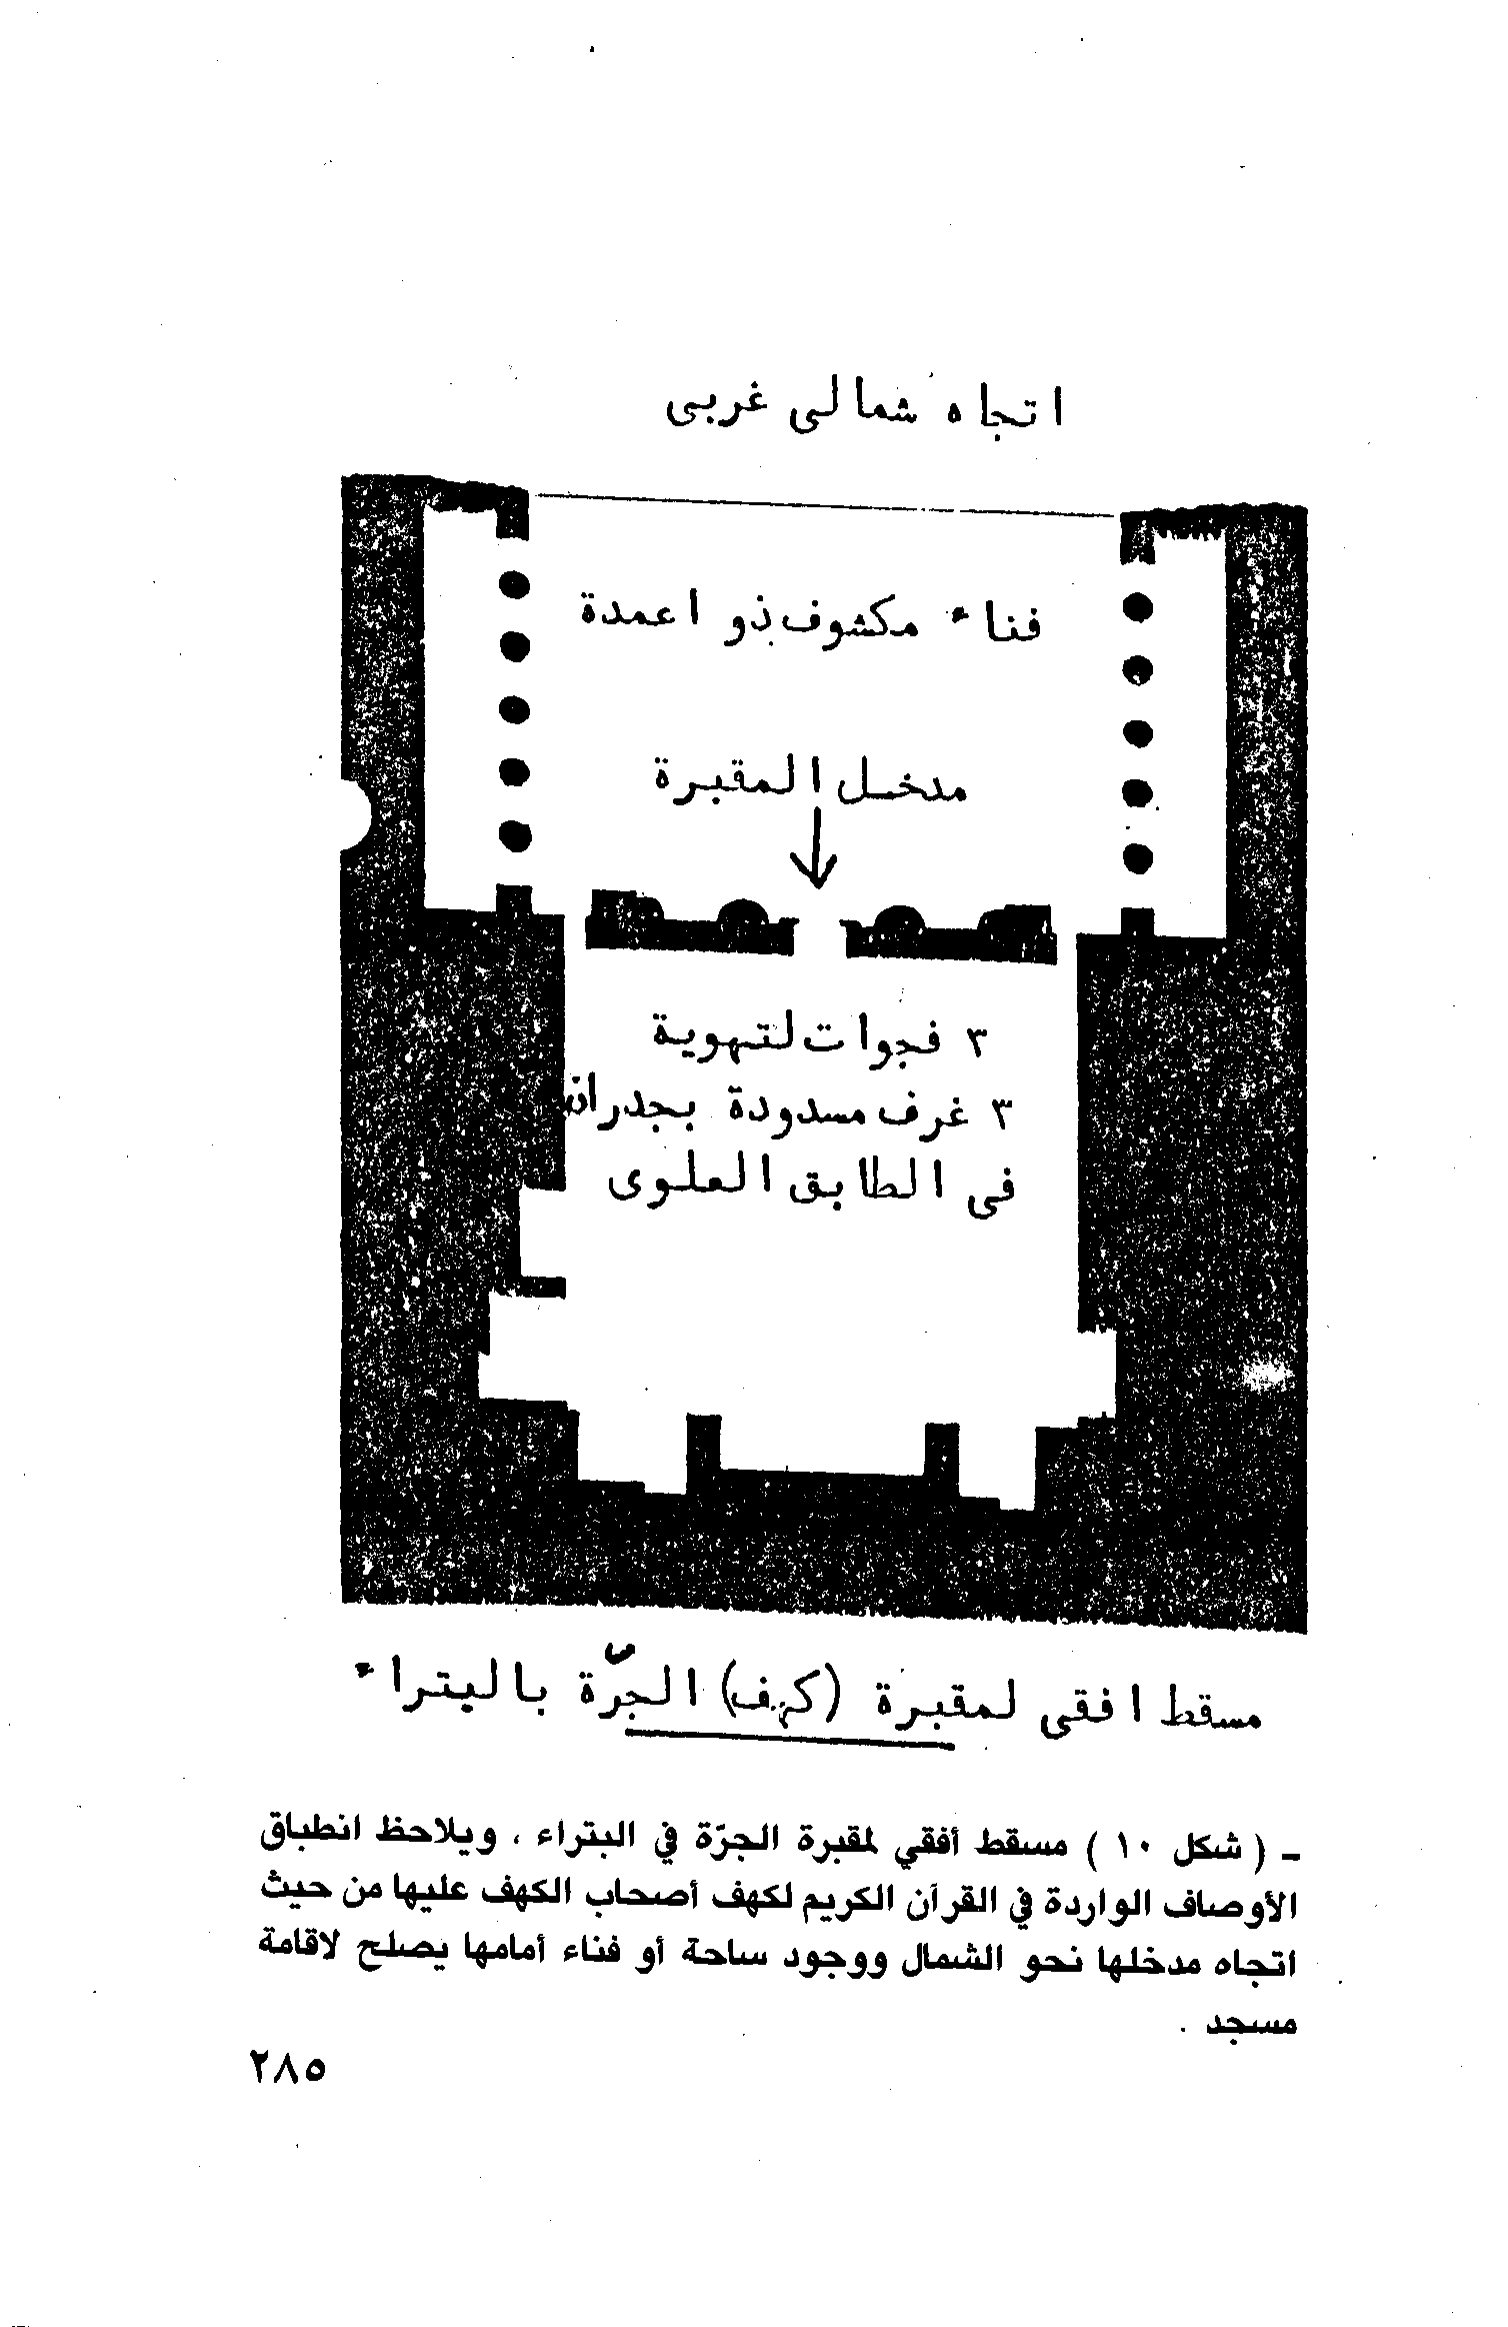 اتجاه شمالى غربى
فناء مكشوف ذو اعمدة
مدخل المقبرة
٣ فجوات لتهوية
٣ غرف مسدودة بجدران
فى الطابق العلوى
مسقط افقى لمقبرة (كهف) الجرّة بالبتراء
- ( شكل ١٠ ) مسقط أفقي لمقبرة الجرّة في البتراء ، ويلاحظ انطباق
الأوصاف الواردة في القرآن الكريم لكهف أصحاب الكهف عليها من حيث
اتجاه مدخلها نحو الشمال ووجود ساحة أو فناء أمامها يصلح لاقامة
مسجد .
٢٨٥